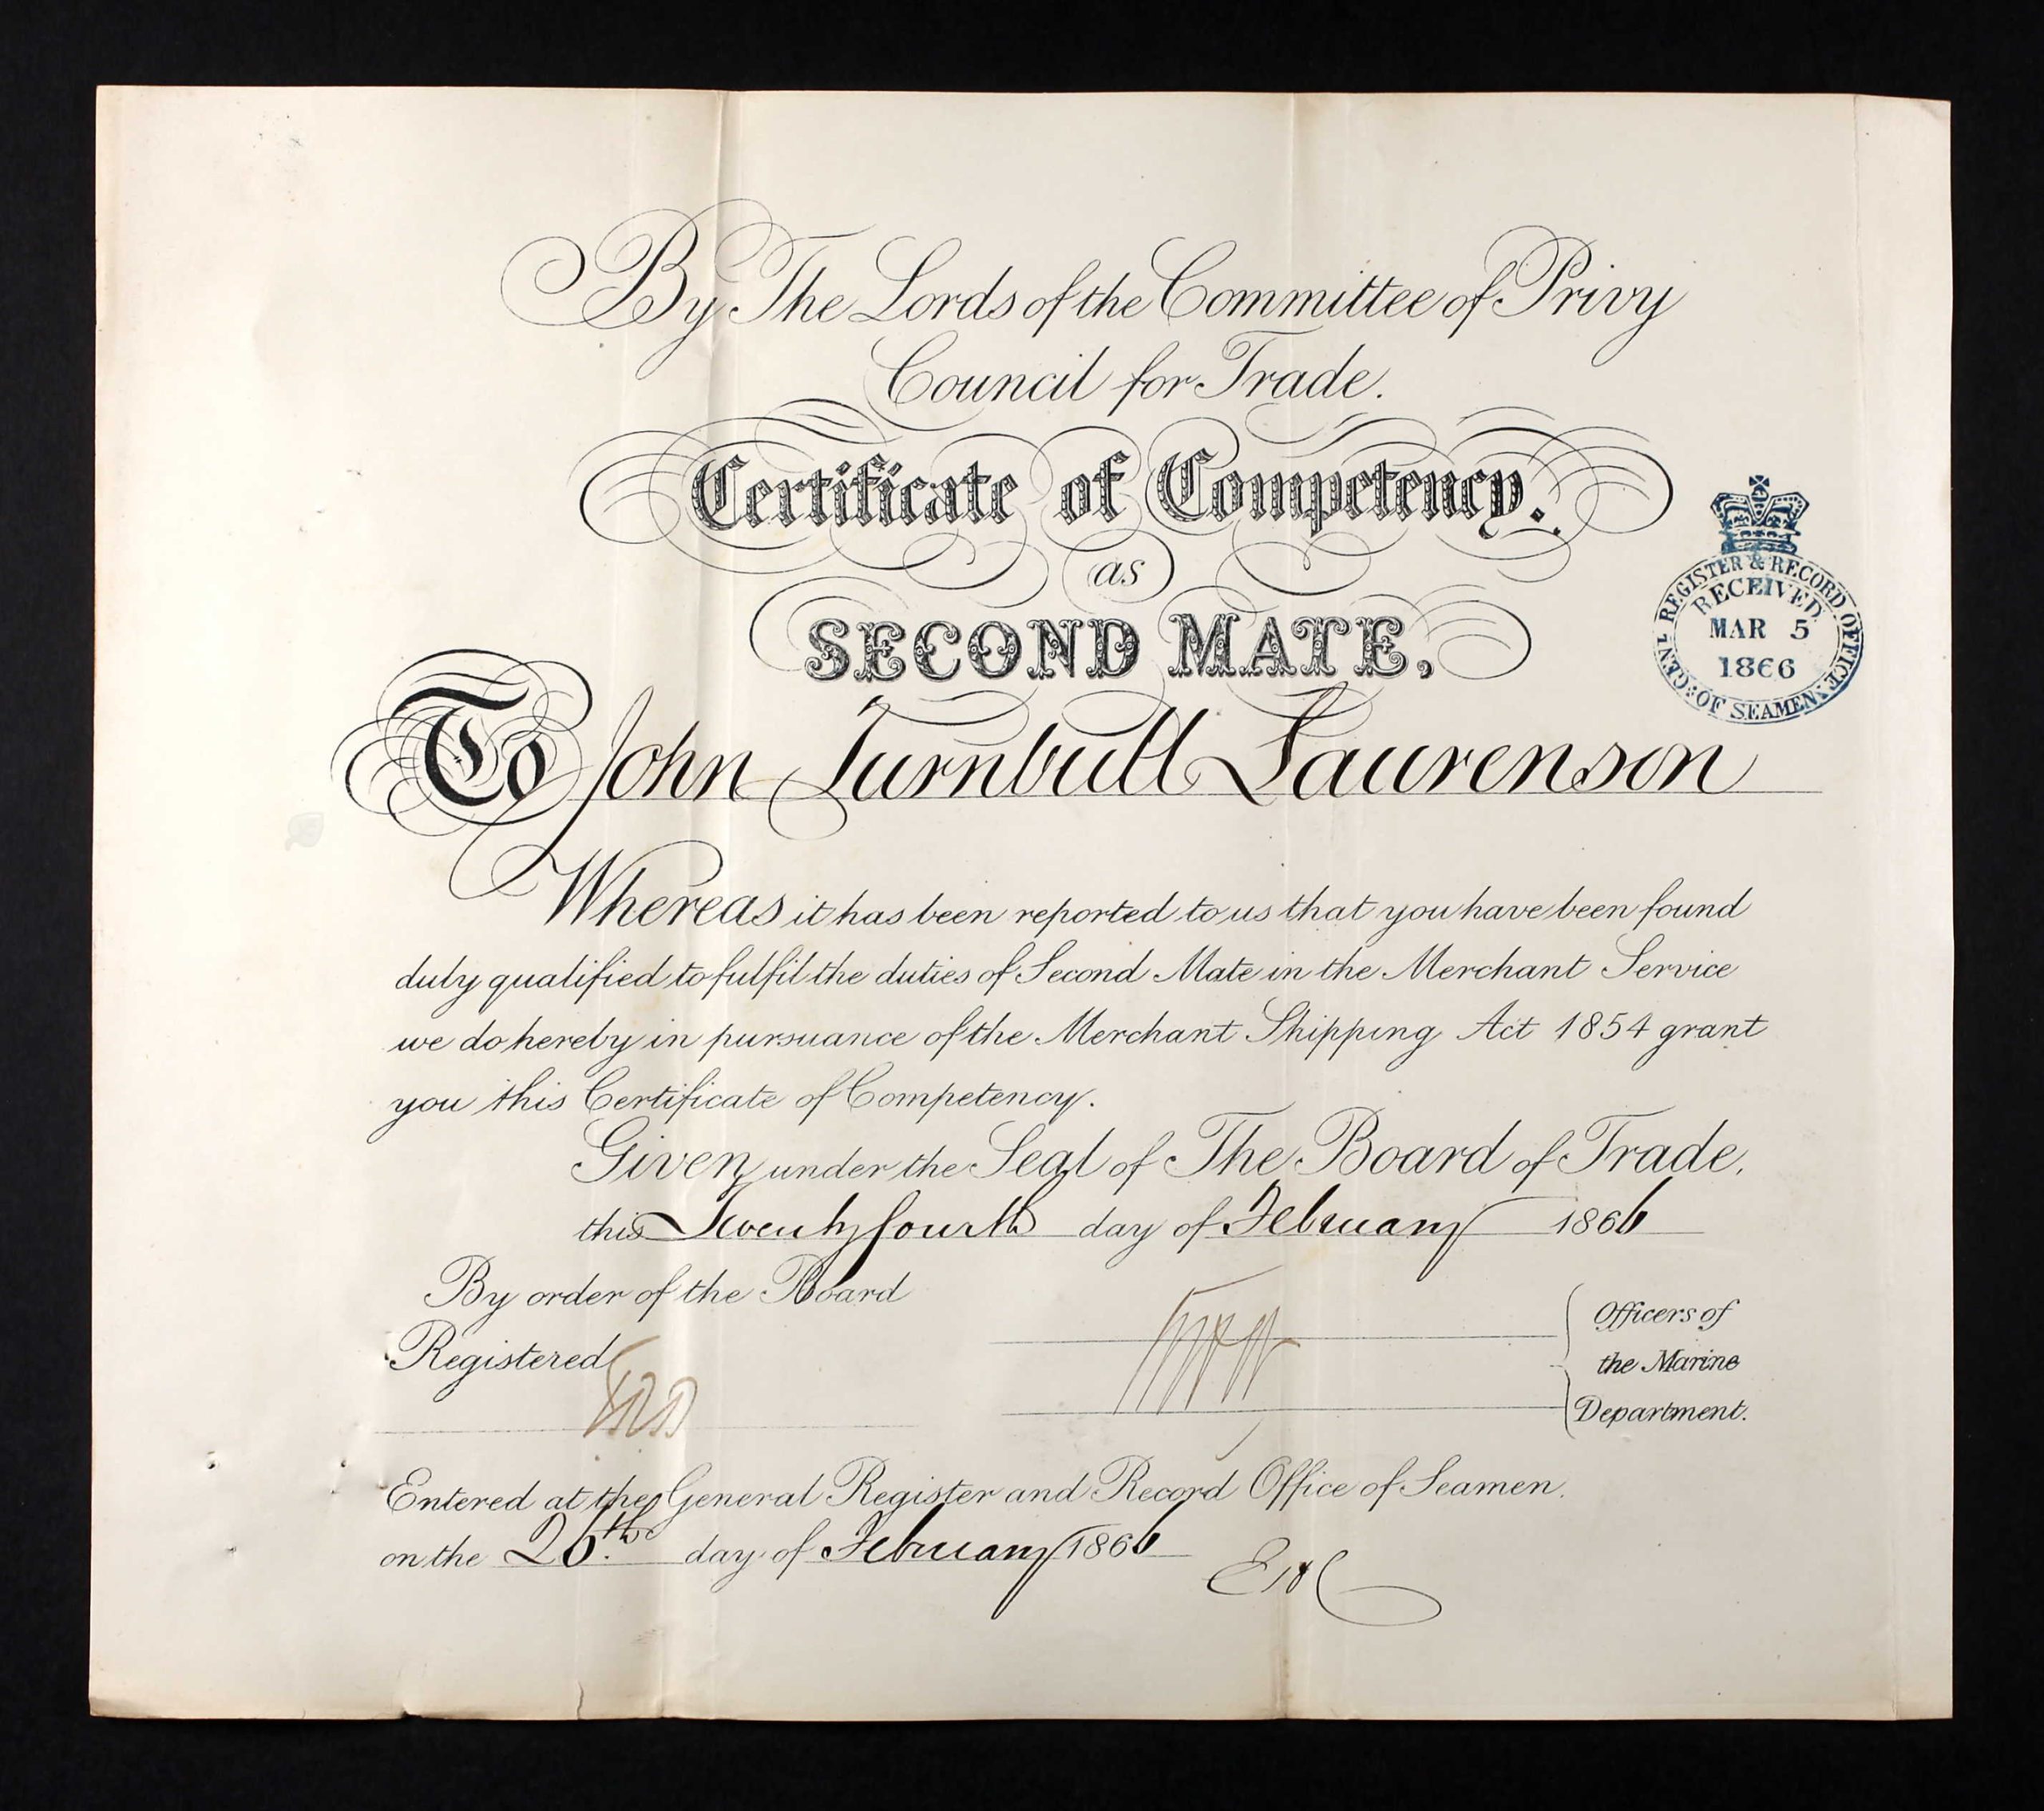 By The Lords of the Committee of Privy
Council for Trade.
Certificate of Competency.
as
SECOND MATE,
GENL REGISTER & RECORD OFFICE OF SEAMEN
RECEIVED
MAR 5
1866
To John Turnbull Laurenson
Whereas it has been reported to us that you have been found
duly qualified to fulfil the duties of Second Mate in the Merchant Service
we do hereby in pursuance of the Merchant Shipping Act 1854 grant
you this Certificate of Competency.
Given under the Seal of The Board of Trade,
this Twenty fourth day of February 1866
By order of the Board
Registered
Officers of
the Marine
Department.
Entered at the General Register and Record Office of Seamen.
on the 26.th day of February 1866